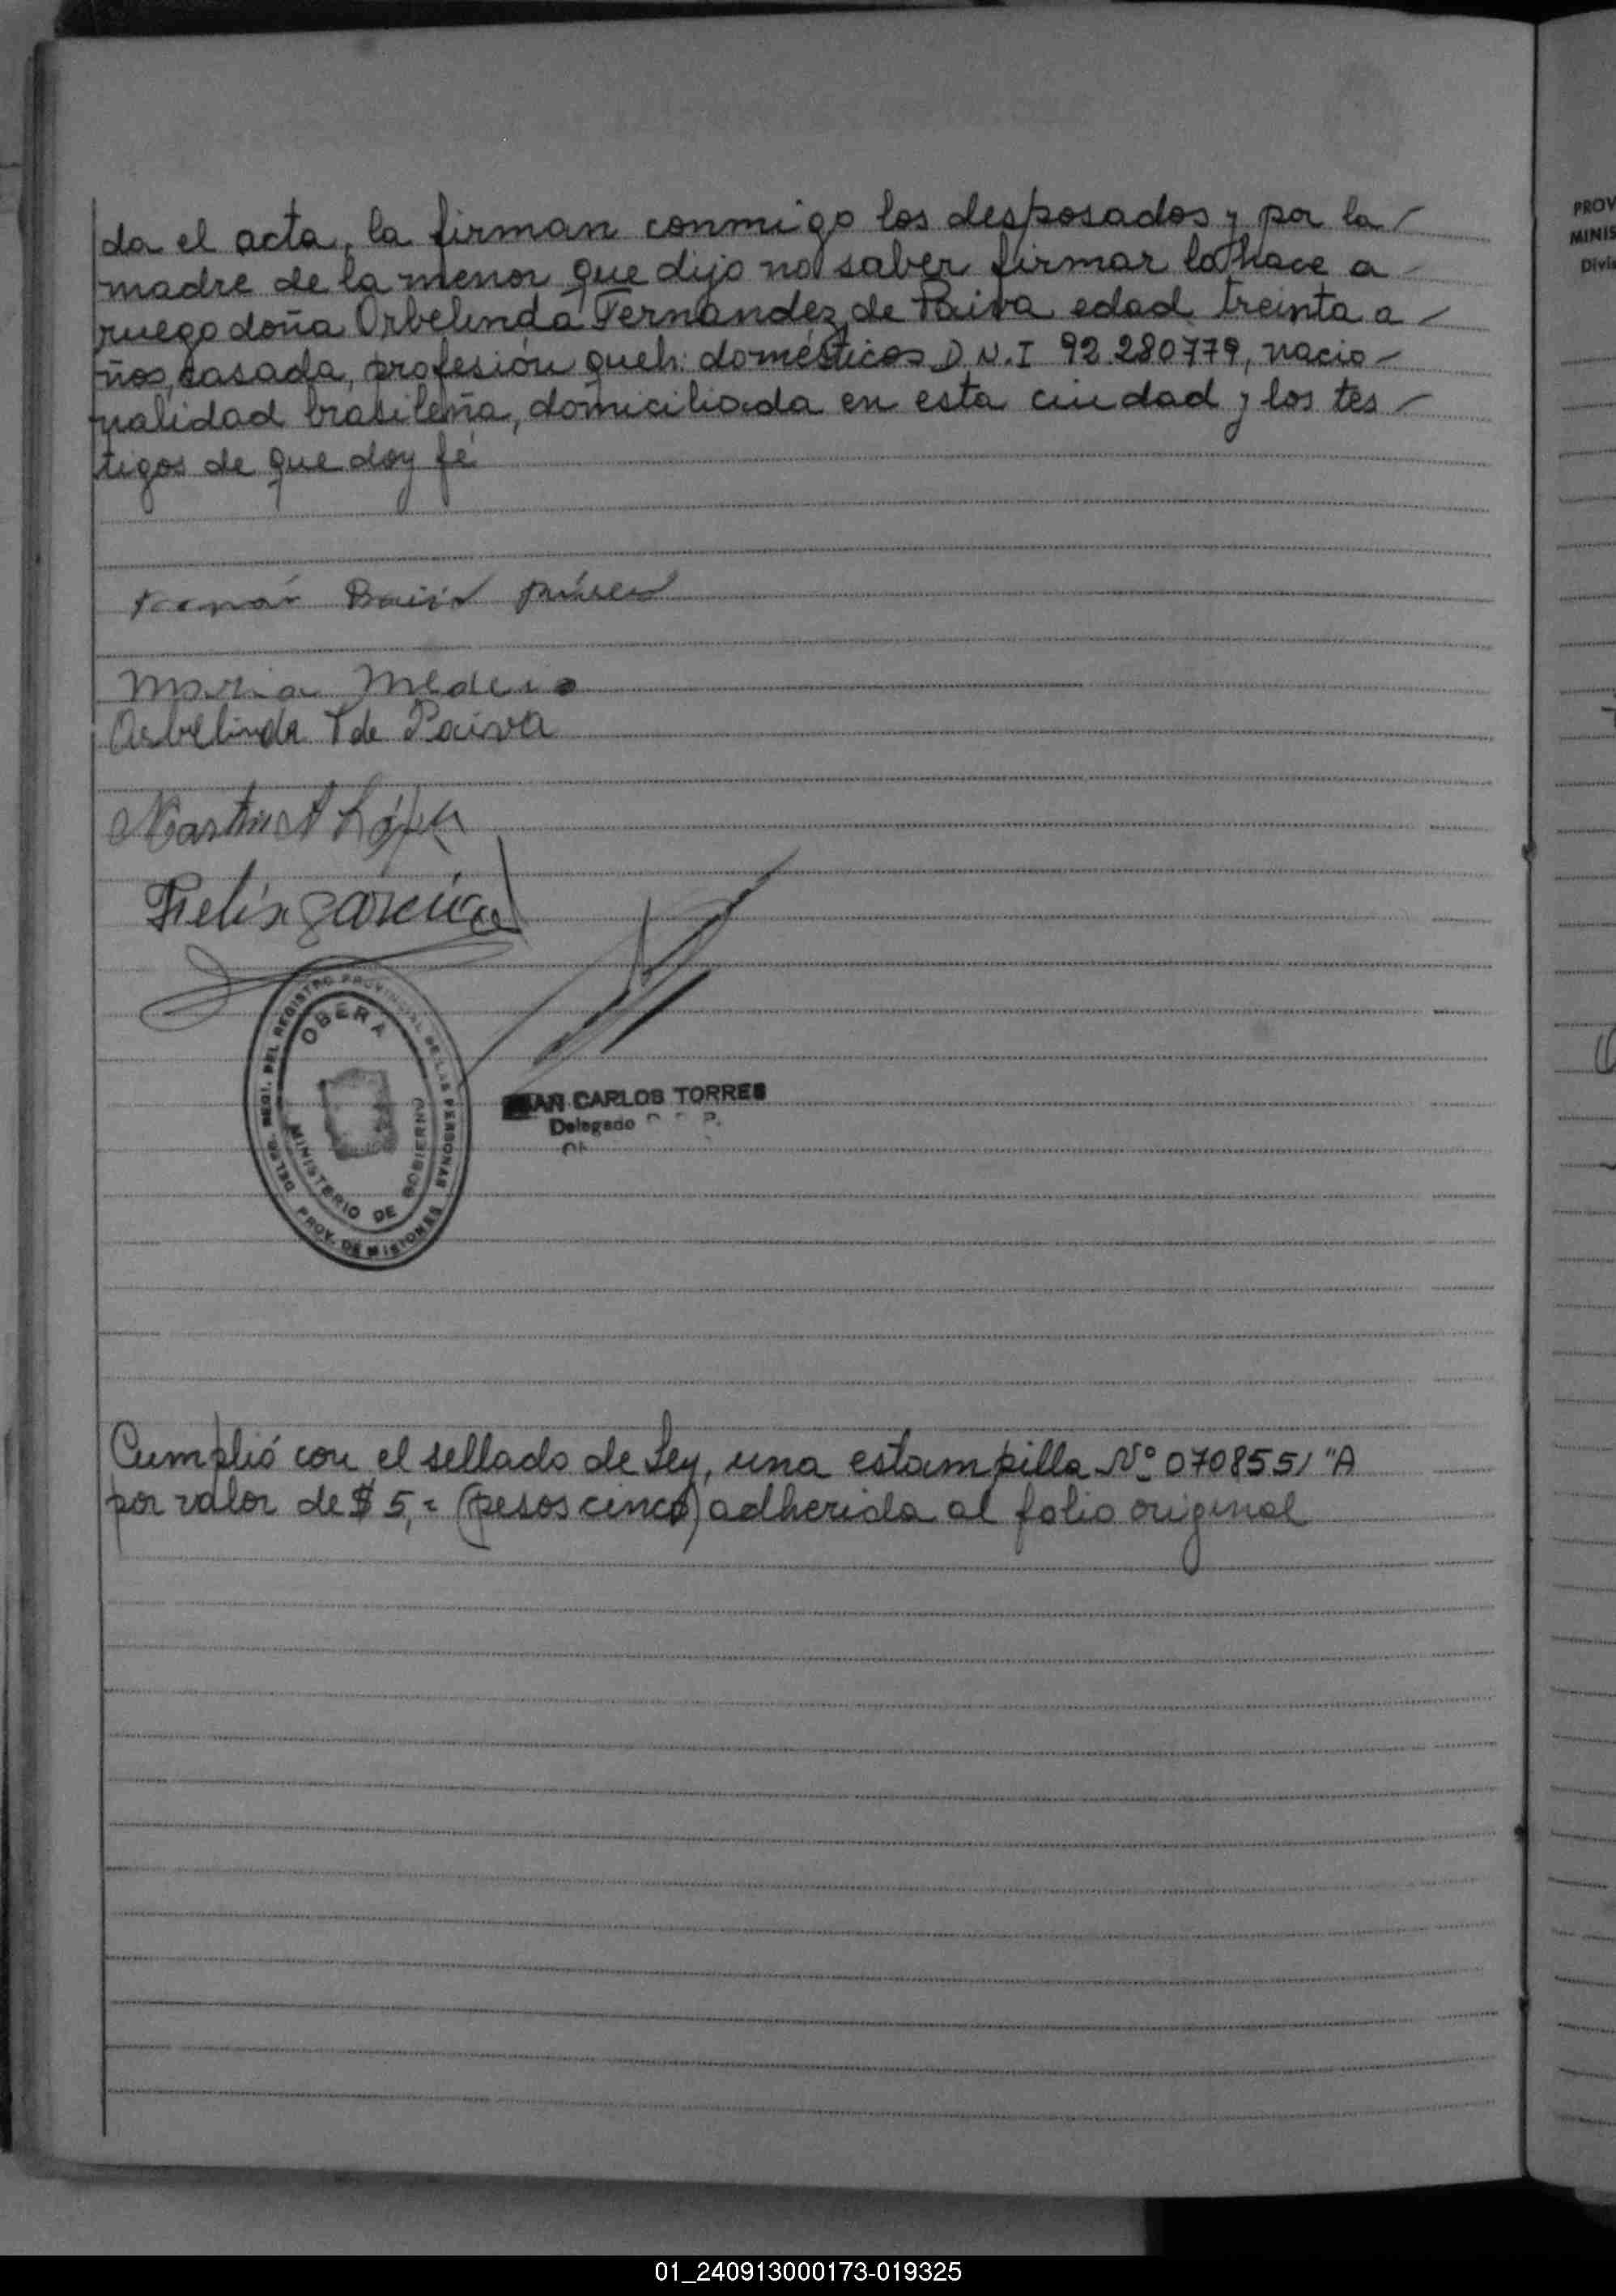 da el acta, la firman conmigo los desposados y por la
madre de la menor que dijo no saber firmar lo hace a
ruego doña Orbelinda Fernandez de Paiva edad treinta a
ños, casada, profesión queh. domésticos D.N.I 92.280779, nacio
nalidad brasileña, domiciliada en esta ciudad y los tes
tigos de que doy fé
Maria
Orbelinda F de Paiva
López
Felix Garcia
DELEG. REGI. DEL REGISTRO PROVINCIAL DE LAS PERSONAS
OBERA
MINISTERIO DE GOBIERNO
PROV. DE MISIONES
CARLOS TORRES
Delegado
Cumplió con el sellado de Ley, una estampilla Nº 0708551 "A
por valor de $ 5,= (pesos cinco) adherida al folio original
PROV
MINIS
Divis
01_240913000173-019325